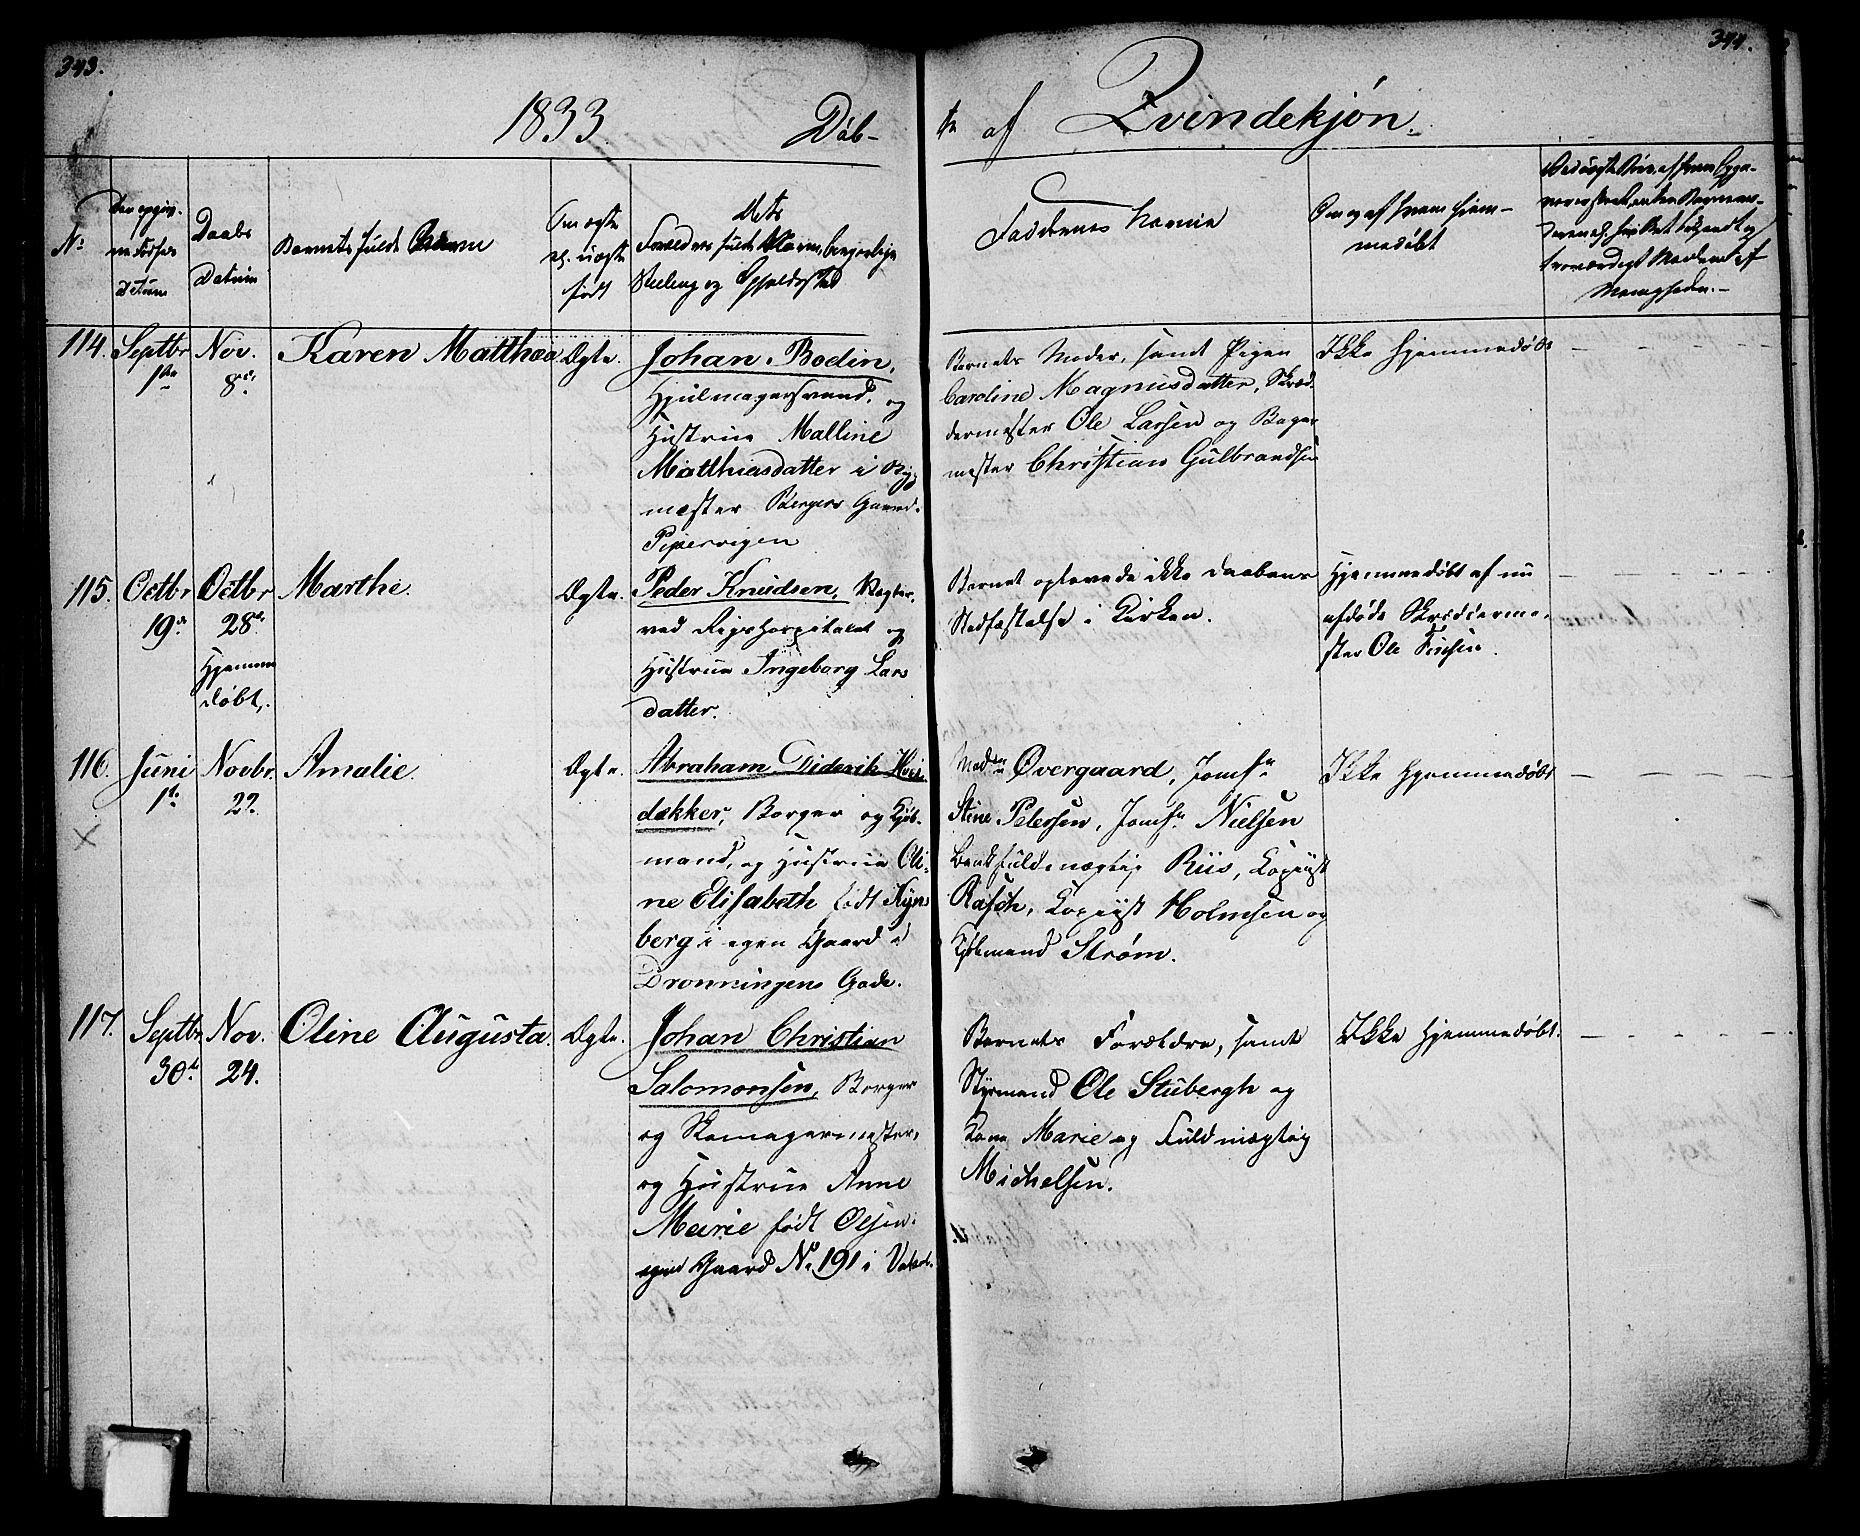 343.
344.
1833
Døb-
te af Qvindekjøn.
No
Den opgiv-
ne Fødsels
Datum
Daabs
Datum
Barnets fulde Navne
Om ægte
el. uægte
født
Dets
Forældres fulde Navne, borgerlige
Stilling og Opholdssted
Faddernes Navne
Om og af hvem hjem-
medøbt
114.
Septbr
1ste
Nov.
8de
Karen Matthea
Ægte.
Johan Bodin,
Hjulmagersvend, og
Hustrue Malline
Matthiasdatter i Byg-
mester Bergers Gaard.
Pipervigen
Barnets Moder, samt Pigen
Caroline Magnusdatter, Skræd-
dermester Ole Larsen og Bager
mester Christian Gulbrandsen
Ikke hjemmedøbt
115.
Octbr
19de
Octbr
28de
Hjemme
døbt.
Marthe.
Ægte.
Peder Knudsen, Vægter
ved Rigshospitalet og
Hustrue Ingeborg Lars
datter.
Barnet oplevede ikke Daabens
Stadfæstelse i Kirken.
Hjemmedøbt af nu
afdøde Skræderme-
ster Ole
116.
Juni
1ste
Novbr.
22
X
Amalie.
Ægte.
Abraham Diderik
dækker, Borger og Kjøb-
mand, og Hustrue Oli-
ne Elisabeth født Kyn
berg i egen Gaard i
Dronningens Gade.
Madme Øvergaard, Jomfr
Stine Petersen, Jomfr Nielsen
Bankfuldmægtig Riis, Copiist
Rasch, Copiist Holmsen og
Kjøbmand Strøm.
Ikke hjemmedøbt
117.
Septbr.
30te
Nov.
24.
Oline Augusta.
Ægte.
Johan Christian
Salomonsen, Borger
og Skomagermester,
og Hustrue Anne
Marie født Olsen.
egen Gaard No 191 i
Barnets Forældre, samt
Styrmand Ole Stubergh og
Kone Marie og Fuldmægtig
Michelsen.
Ikke hjemmedøbt.